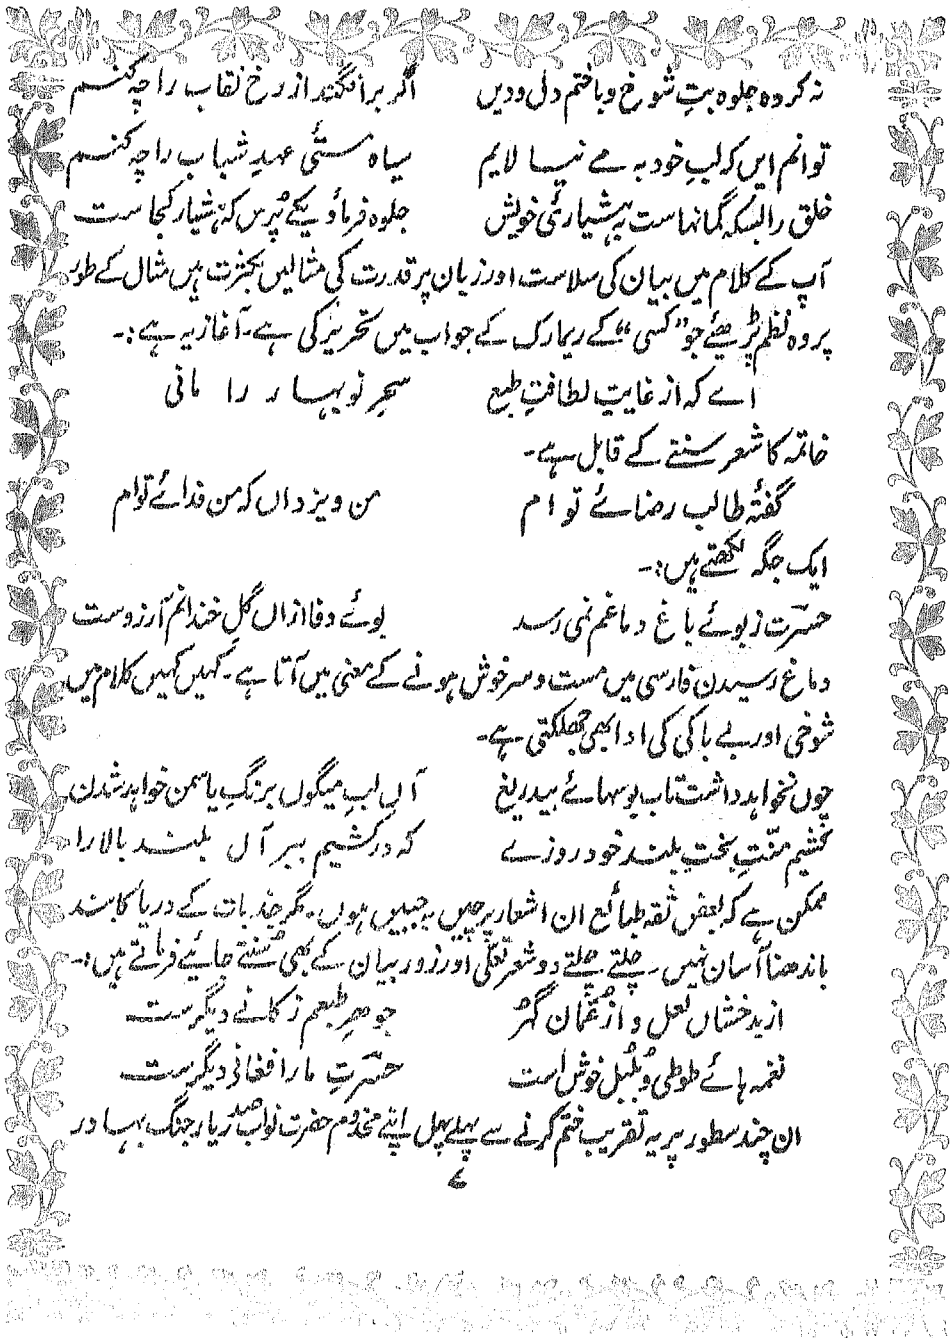 نہ کردہ جلوہ بتِ شوخ و باختم دل و دیں اگر برافگند از رخ نقاب را چہ کنم
توانم ایں کہ لبِ خود بہ مے نیالایم سیاہ مستیٔ عہدِ شباب را چہ کنم
خلق را بسکہ گمانہاست بہ ہشیاریٔ خویش جلوہ فرما و یکے پُرس کہ ہشیار کجاست
آپ کے کلام میں بیان کی سلاست اور زبان پر قدرت کی مثالیں بکثرت ہیں مثال کے طور
پر وہ نظم پڑھئے جو "کسی" کے ریمارک کے جواب میں تحریر کی ہے۔ آغاز یہ ہے:۔
اے کہ از غایتِ لطافتِ طبع سحرِ نوبہار را مانی
خاتمہ کا شعر سننے کے قابل ہے۔
گفتۂ طالب رضائے تو ام من و یزداں کہ من فدائے توام
ایک جگہ لکھتے ہیں:۔
حسرت ز بوئے باغ دماغم نمی رسد بوئے وفا ازاں گلِ خندانم آرزوست
دماغ رسیدن فارسی میں مست و سرخوش ہونے کے معنی میں آتا ہے۔ کہیں کہیں کلام میں
شوخی اور بے باکی کی ادا بھی جھلکتی ہے۔
چوں نخواہد داشت تاب بوسہائے بیدریغ آں لبِ میگوں برنگِ یاسمن خواہد شدن
کشیم منّتِ بختِ بلند خود روزے کہ درکشیم ببر آں بلند بالا را
ممکن ہے کہ بعض ثقہ طبائع ان اشعار پر چیں بہ جبیں ہوں۔ مگر جذبات کے دریا کا بند
باندھنا آسان نہیں۔ چلتے چلتے دو شعر تعلّی اور زور بیان کے بھی سُنتے جائیے فرماتے ہیں:۔
از بدخشاں لعل و از عُمّان گہر جوہرِ طبعم ز کانے دیگرست
نغمہ ہائے طوطی و بُلبل خوش است حسرتِ ما را فغانی دیگرست
ان چند سطور پر یہ تقریب ختم کرنے سے پہلے پہل اپنے مخدوم حضرت نواب صدر یار جنگ بہادر
۷